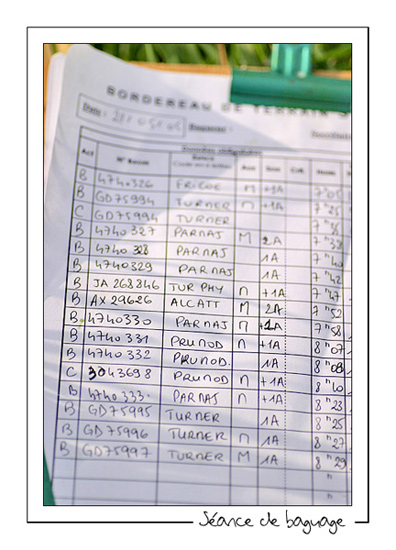 BORDEREAU DE TERRAIN
Date :
Act N° Sexe Age
B 4740326 FRICOE M +1A 7h05
B GD75994 TURNER n +1A 7h25
C GD75994 TURNER
B 4740327 PARNAJ M 2A 7h38
B 4740328 PARNAJ 1A 7h40
B 4740329 PARNAJ 1A 7h42
B JA268846 TURPHY n +1A 7h47
B AX29626 ALCATT M 2A 7h52
B 4740330 PARNAJ n +1A 7h58
B 4740331 PRUNOD n +1A 8h07
B 4740332 PRUNOD. 1A 8h08
C 3043698 PRUNOD n +1A 8h10
B 4740333 PARNAJ n +1A 8h23
B GD75995 TURNER 1A 8h25
B GD75996 TURNER n 1A 8h27
B GD75997 TURNER M 1A 8h29
h
Séance de baguage